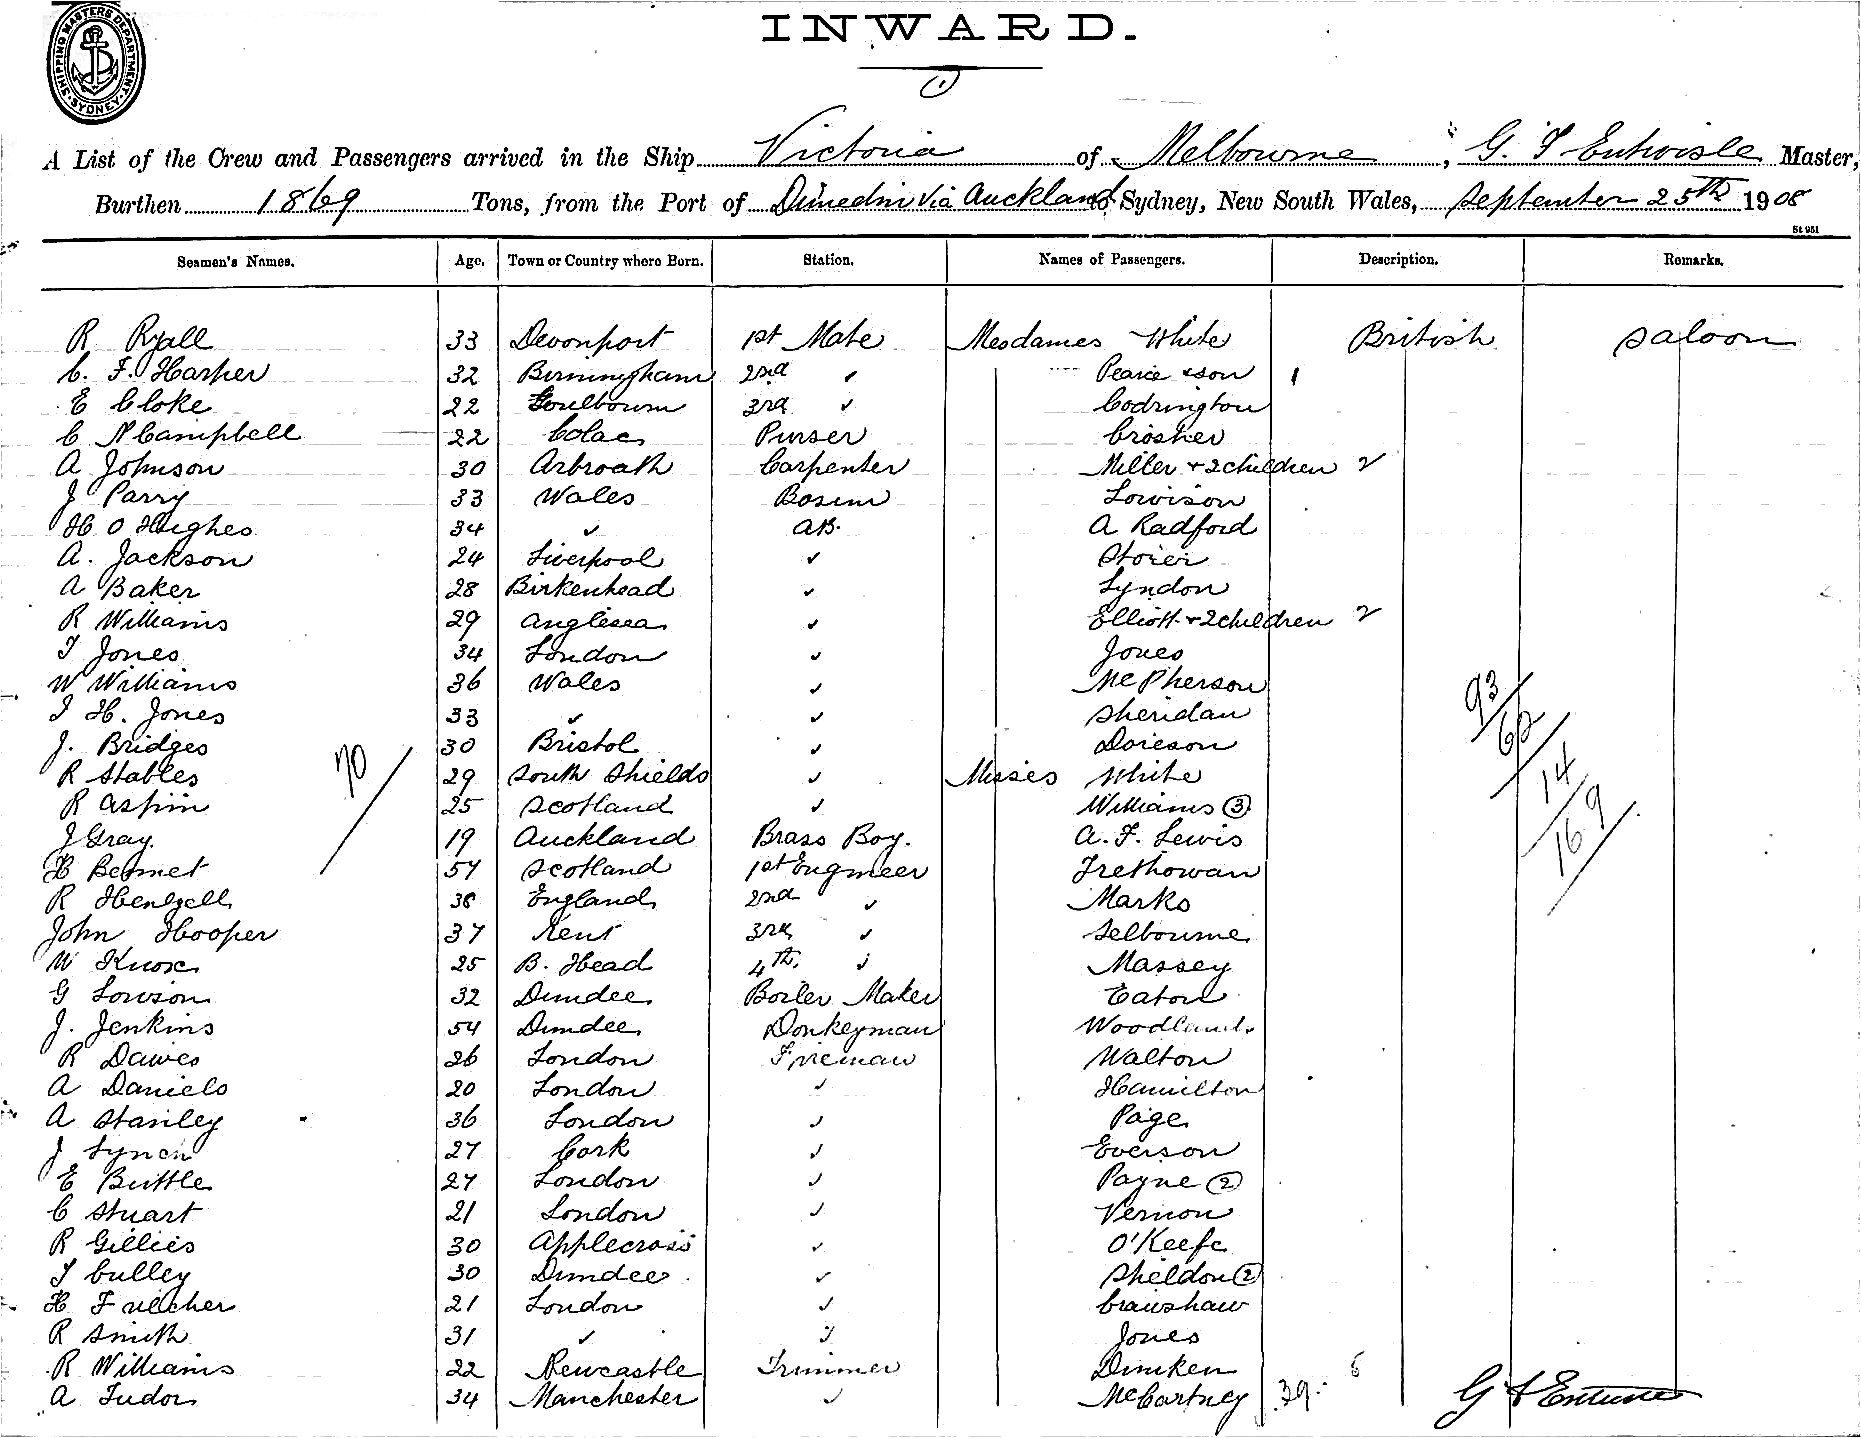 SHIPPING MASTERS DEPARTMENT SYDNEY
INWARD.
A List of the Crew and Passengers arrived in the Ship Victoria of Melbourne, G. T Entwisle Master,
Burthen 1869 Tons, from the Port of Dunedin via Auckland to Sydney, New South Wales, September 25th 1908
St 951
Seamen's Names. Age. Town or Country where Born. Station. Names of Passengers. Description. Remarks.
R Ryall 33 Devonport 1st Mate Mesdames White British Saloon
C. F. Harper 32 Birmingham 2nd ✓ Pearce & son 1
E Cloke 22 Goulbourn 3rd ✓ Codrington
C N Campbell 22 Colac Purser Crosher
A Johnson 30 Arbroath Carpenter Miller + 2 children 2
J Parry 33 Wales Bosun Lowison
H O Hughes 34 ✓ AB. A Radford
A. Jackson 24 Liverpool ✓ Storer
A Baker 28 Birkenhead ✓ Lyndon
R Williams 29 Anglesea ✓ Elliott + 2 children 2
T Jones 34 London ✓ Jones
W Williams 36 Wales ✓ McPherson
T H. Jones 33 ✓ ✓ Sheridan
J. Bridges 30 Bristol ✓
R Stables 29 South Shields ✓ Misses White
R Aspin 25 Scotland ✓ Williams (3)
J Gray 19 Auckland Brass Boy. A. F. Lewis
H Bennet 57 Scotland 1st Engineer Trethowan
R Henzell 38 England 2nd ✓ Marks
John Hooper 37 Kent 3rd ✓ Selbourne
W Knox 25 B. Head 4th ✓ Massey
G Lowson 32 Dundee Boiler Maker Eaton
J. Jenkins 54 Dundee Donkeyman Woodlands
R Dawes 26 London Fireman Walton
A Daniels 20 London ✓ Hamilton
A Stanley 36 London ✓ Page
J Lynch 27 Cork ✓ Everson
E Buttle 27 London ✓ Payne (2)
C Stuart 21 London ✓ Vernon
R Gillies 30 Applecross ✓ O'Keefe
T Culley 30 Dundee ✓ Sheldon (2)
H Fulcher 21 London ✓ Crawshaw
R Smith 31 ✓ ✓ Jones
R Williams 22 Newcastle Trimmer Dunken 5
A Tudor 34 Manchester ✓ McCartney 39
70
93
62
14
169